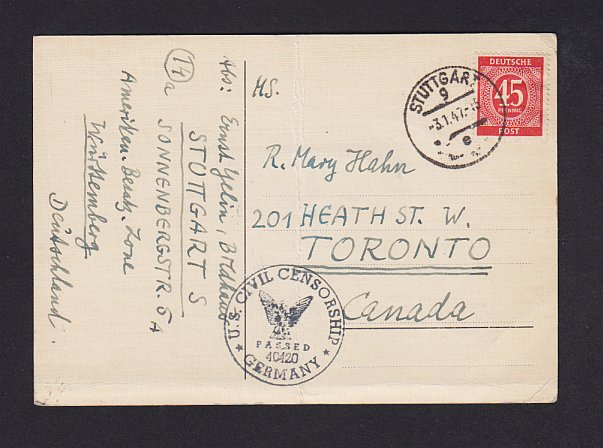 Abs: Ernst Yelin, Bildhauer
STUTTGART S
SONNENBERGSTR. 5A
(14)a
Amerikan. Besatz. Zone
Württemberg
Deutschland.
MS.
R. Mary Hahn
201 HEATH ST. W.
TORONTO
Canada
STUTTGART
9
-3.1.47.-
e
DEUTSCHE
45
PFENNIG
POST
U.S. CIVIL CENSORSHIP
PASSED
40420
GERMANY